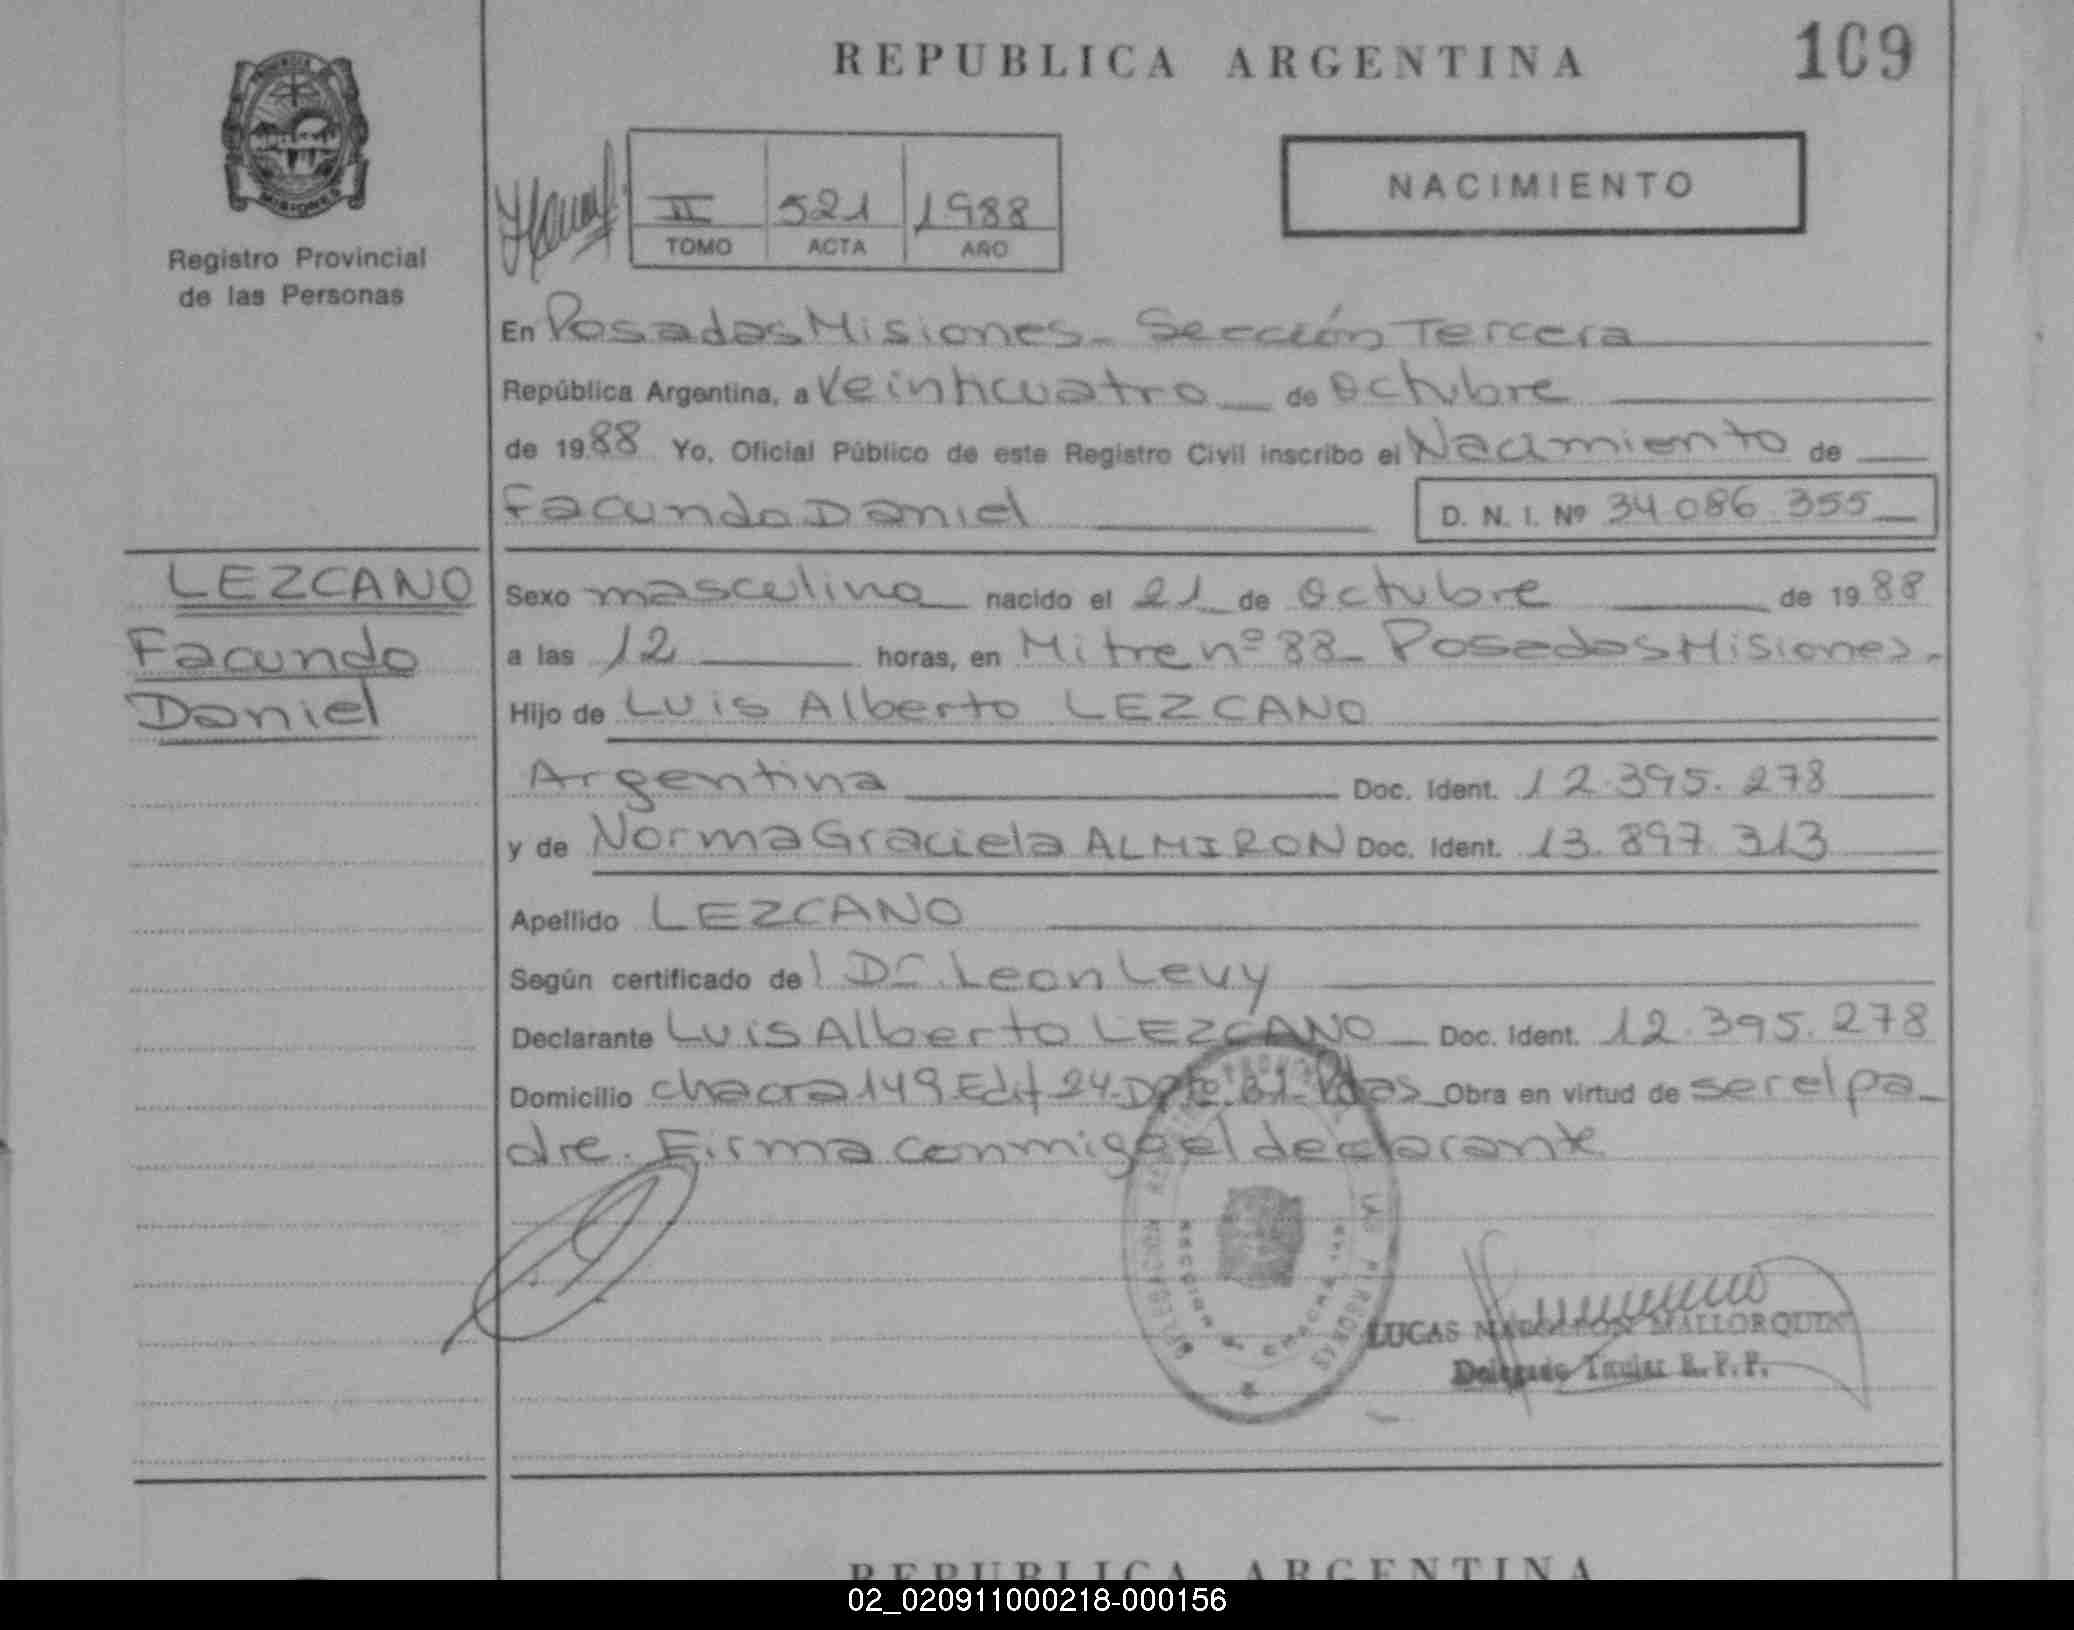 REPUBLICA ARGENTINA
109
Registro Provincial
de las Personas
II 521 1988
TOMO ACTA AÑO
NACIMIENTO
En Posadas Misiones - Sección Tercera
República Argentina, a Veinticuatro de Octubre
de 1988 Yo, Oficial Público de este Registro Civil inscribo el Nacimiento de
Facundo Daniel D. N. I. Nº 34 086 355
LEZCANO
Facundo
Daniel
Sexo masculino nacido el 21 de Octubre de 1988
a las 12 horas, en Mitre nº 88 - Posadas Misiones -
Hijo de Luis Alberto LEZCANO
Argentina Doc. Ident. 12.395.278
y de Norma Graciela ALMIRON Doc. Ident. 13.897.313
Apellido LEZCANO
Según certificado del Dr. Leon Levy
Declarante Luis Alberto LEZCANO Doc. Ident. 12.395.278
Domicilio chacra 149 Edif 24 Dpto. Pdas Obra en virtud de ser el pa-
dre. Firma conmigo el declarante
LUCAS MALLORQUIN
Delegado Titular R. P. P.
REPUBLICA ARGENTINA
02_020911000218-000156